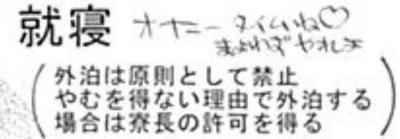 就寝 オナニータイムね♡
まよわずやれしま
(外泊は原則として禁止
やむを得ない理由で外泊する
場合は寮長の許可を得る)